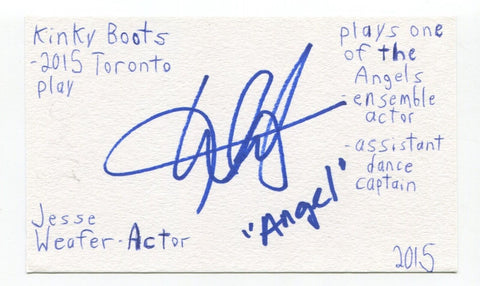 Kinky Boots
-2015 Toronto
play
plays one
of the
Angels
-ensemble
actor
-assistant
dance
captain
"Angel"
Jesse
Weafer-Actor
2015